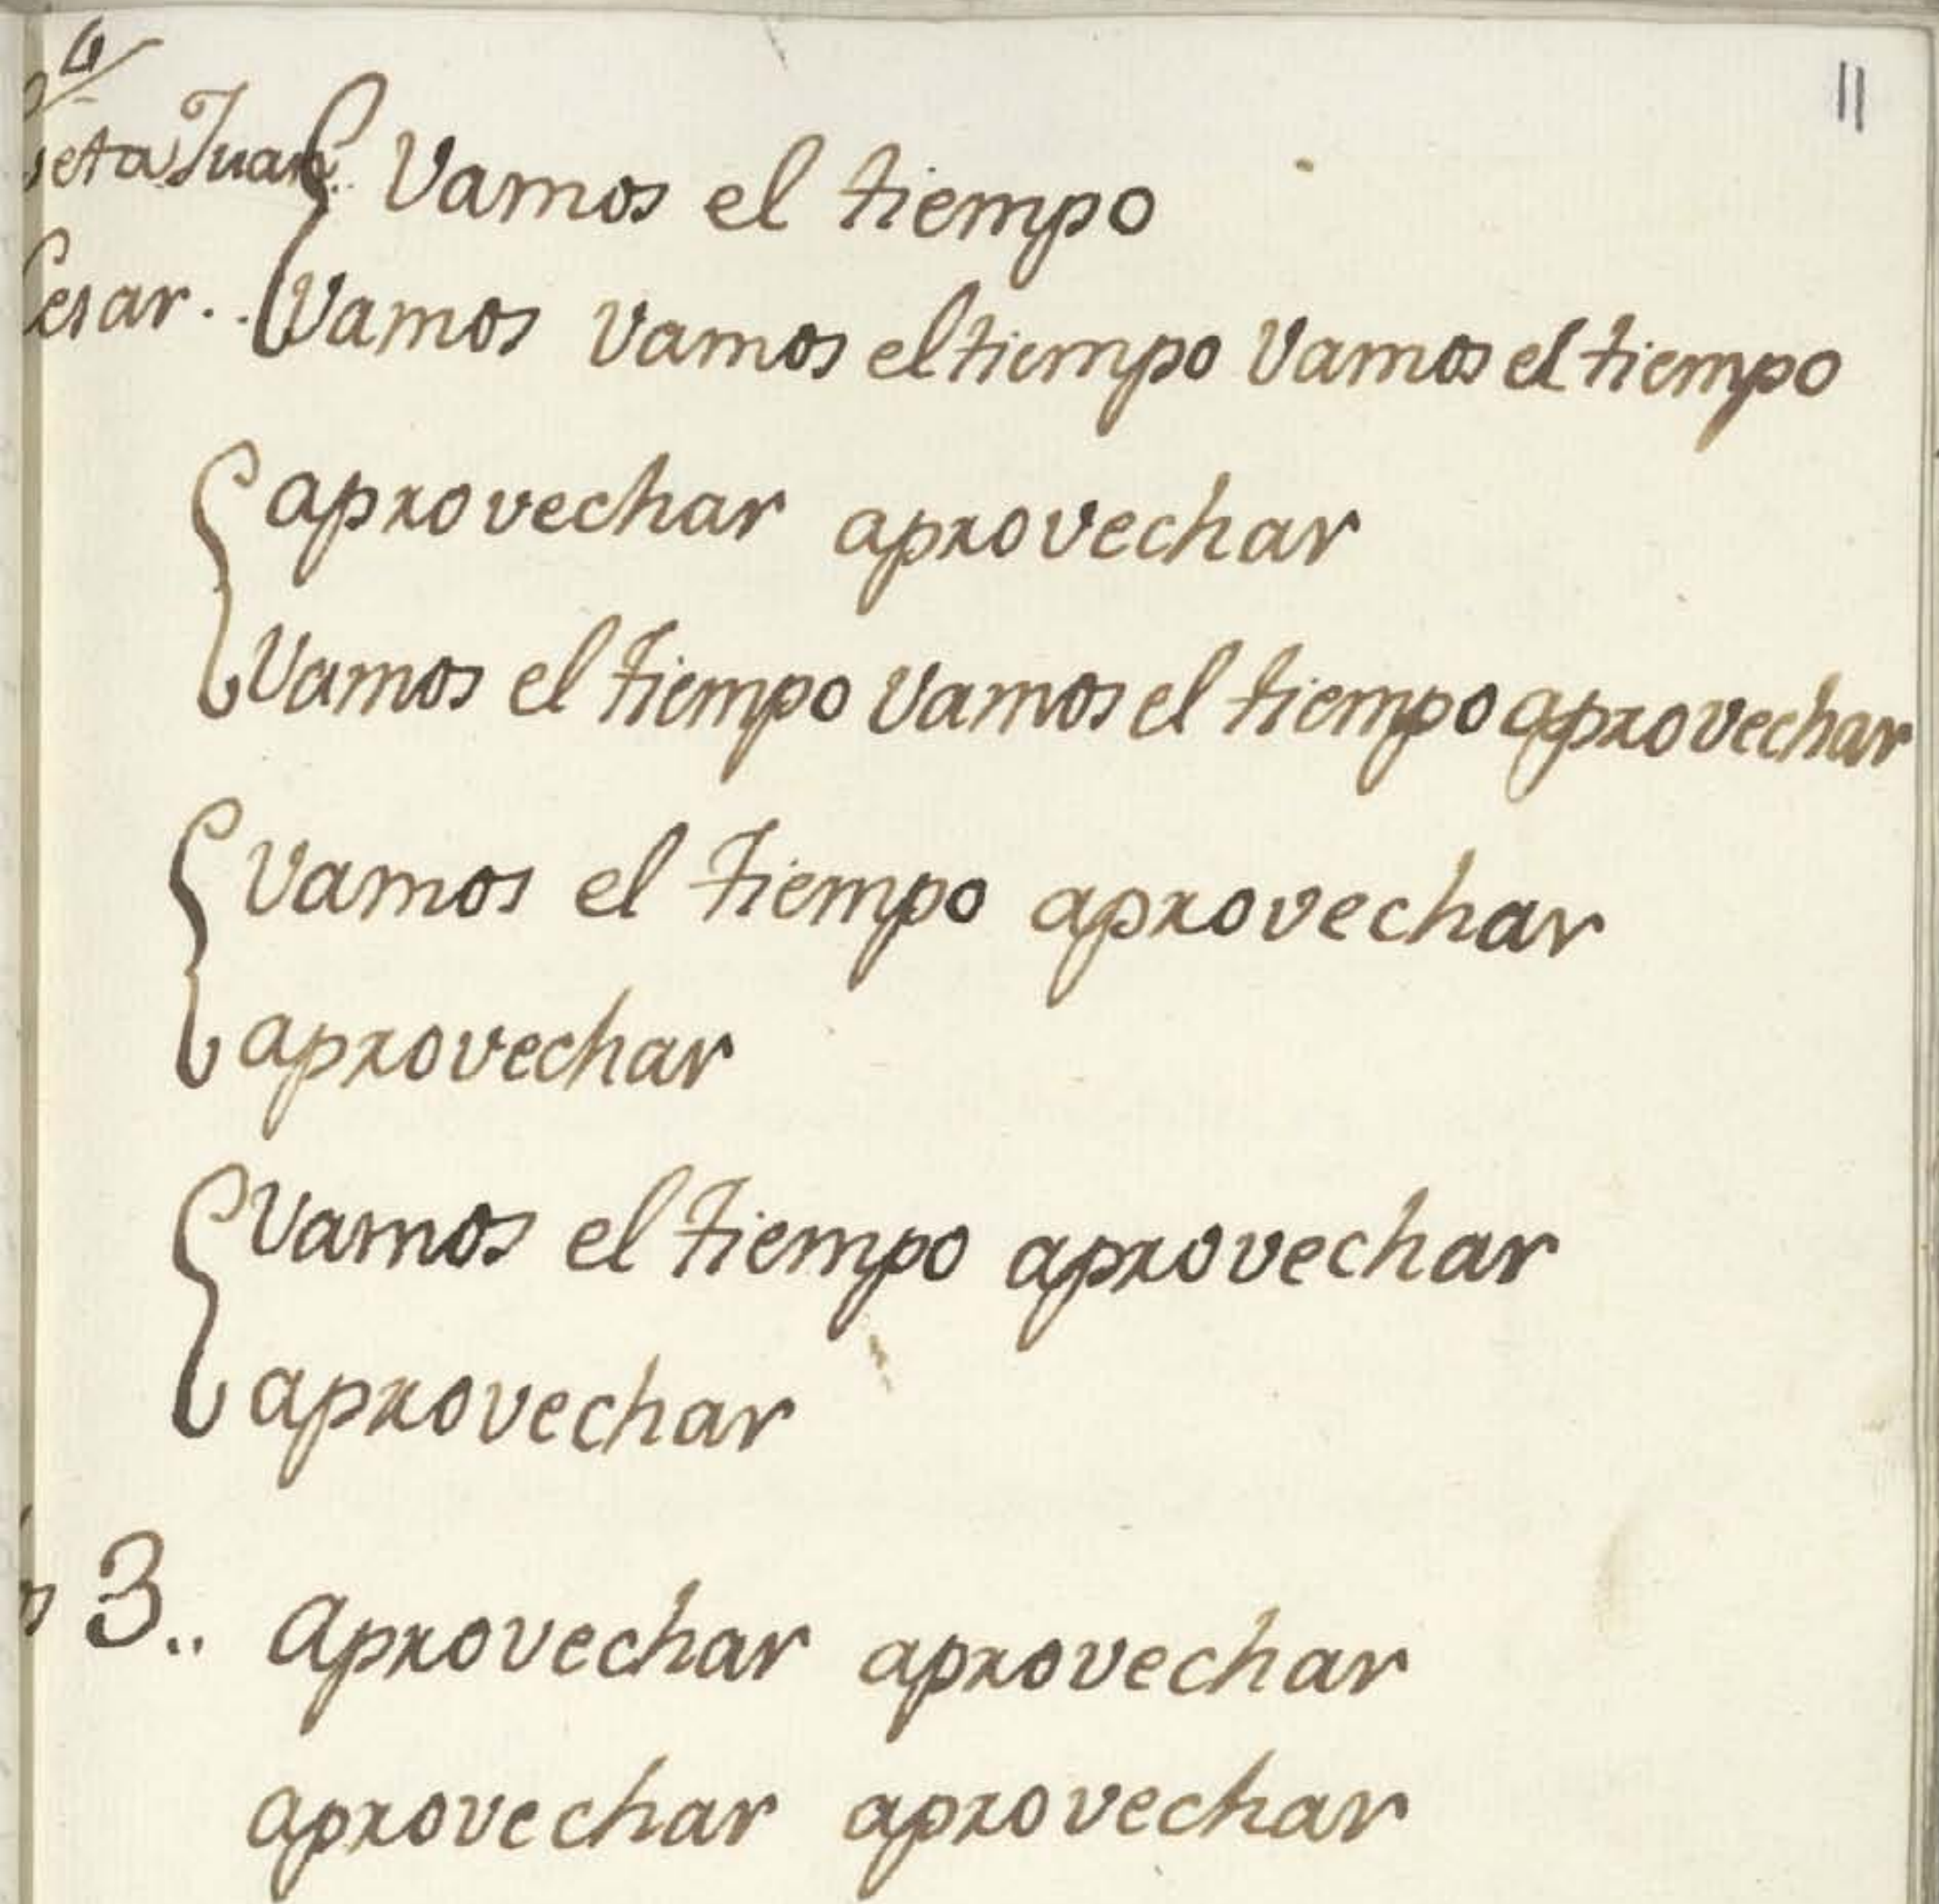 11
Juan.. Vamos el tiempo
Vamos Vamos el tiempo Vamos el tiempo
aprovechar aprovechar
Vamos el tiempo Vamos el tiempo aprovechar
Vamos el tiempo aprovechar
aprovechar
Vamos el tiempo aprovechar
aprovechar
3.. Aprovechar aprovechar
aprovechar aprovechar